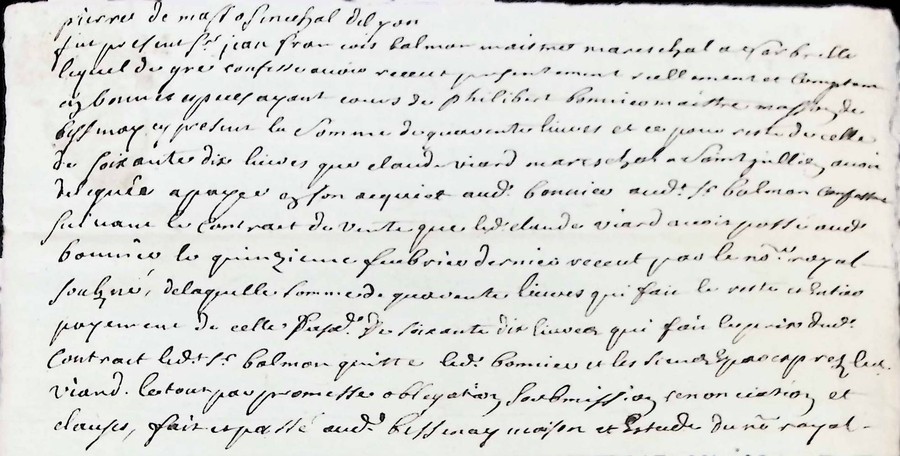 pierres de mas so senechal de lyon
fut present Sr. jean francois balmon maistre mareschal a
lequel de gré confesse avoir receut presentement reellement et comptant
en bonnes especes ayant cours de philibert bonnier maistre masson de
bessenay cy present la somme de quarente livres et ce pour reste de celle
de soixante dix livres que claude viard mareschal a Saint jullien avoit
deleguée a payer en son acquict aud. bonnier aud. Sr. balmon
suivant le contract de vente que led. claude viard avoit passé aud.
bonnier le quinzieme febvrier dernier receut par le nore. royal
soubzné, de laquelle somme de quarente livres qui fait le reste et entier
payement de celle susd. de soixante dix livres qui fait le prix dud.
contract led. Sr. balmon quitte led. bonnier et les siens
viard. le tout par promesse obligation soubmission renonciation et
clauses, fait et passé aud. bessenay maison et Estude du nre. royal